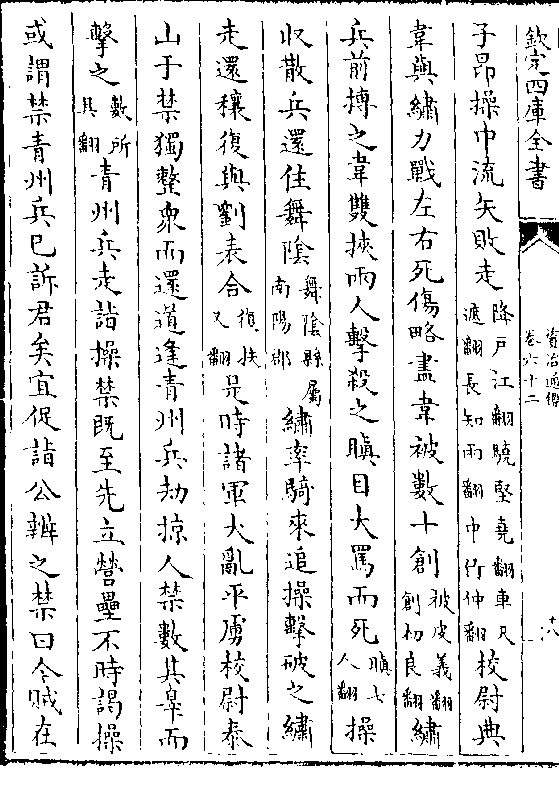 欽定四庫全書
資治通鑑
卷六十二
十八
子昂操中流矢敗走降戶江翻驍堅堯翻車尺遮翻長知兩翻中竹仲翻校尉典
韋與繡力戰左右死傷略盡韋被數十創被皮義翻創初良翻繡
兵前搏之韋雙挾兩人擊殺之瞋目大罵而死瞋七人翻操
收散兵還住舞陰舞陰縣屬南陽郡繡率騎來追操擊破之繡
走還穰復與劉表合復扶又翻是時諸軍大亂平虜校尉泰
山于禁獨整衆而還道逢青州兵劫掠人禁數其辠而
擊之數所具翻青州兵走詣操禁既至先立營壘不時謁操
或謂禁青州兵已訴君矣宜促詣公辨之禁曰今賊在